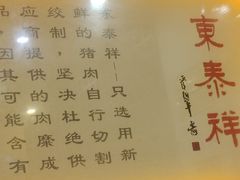 東泰祥
东泰祥——只选用新
鲜的猪肉自行切割
绞制，坚决杜绝供
应商提供的肉糜成
品，因其可能含有